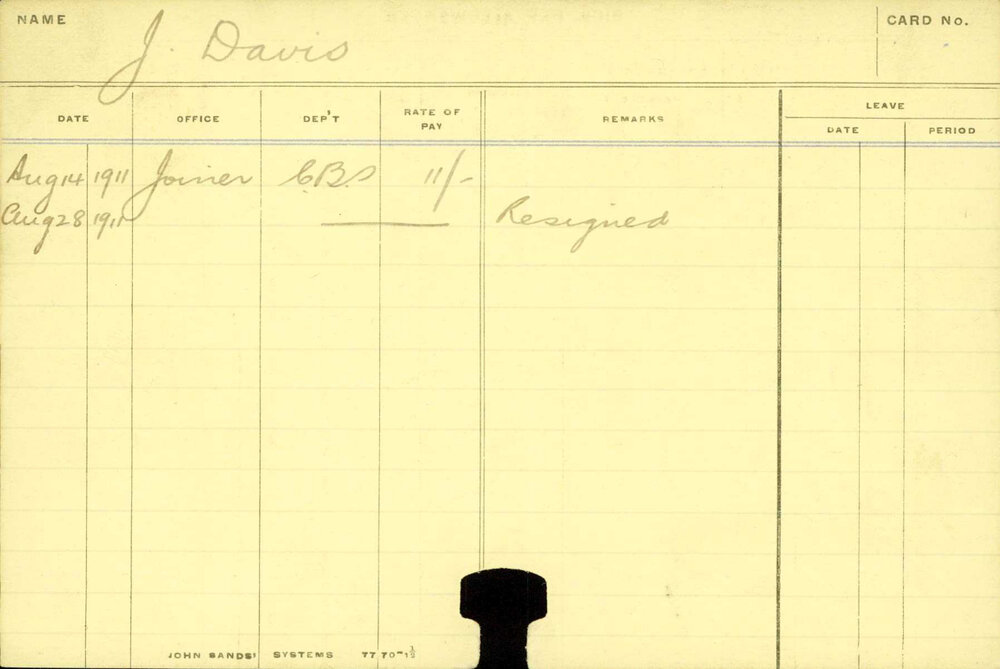 NAME J. Davis CARD No.
DATE OFFICE DEP'T RATE OF PAY REMARKS LEAVE
DATE PERIOD
Aug 14 1911 Joiner C.B.S 11/-
Aug 28 1911 Resigned
JOHN SANDS' SYSTEMS 7770-1½